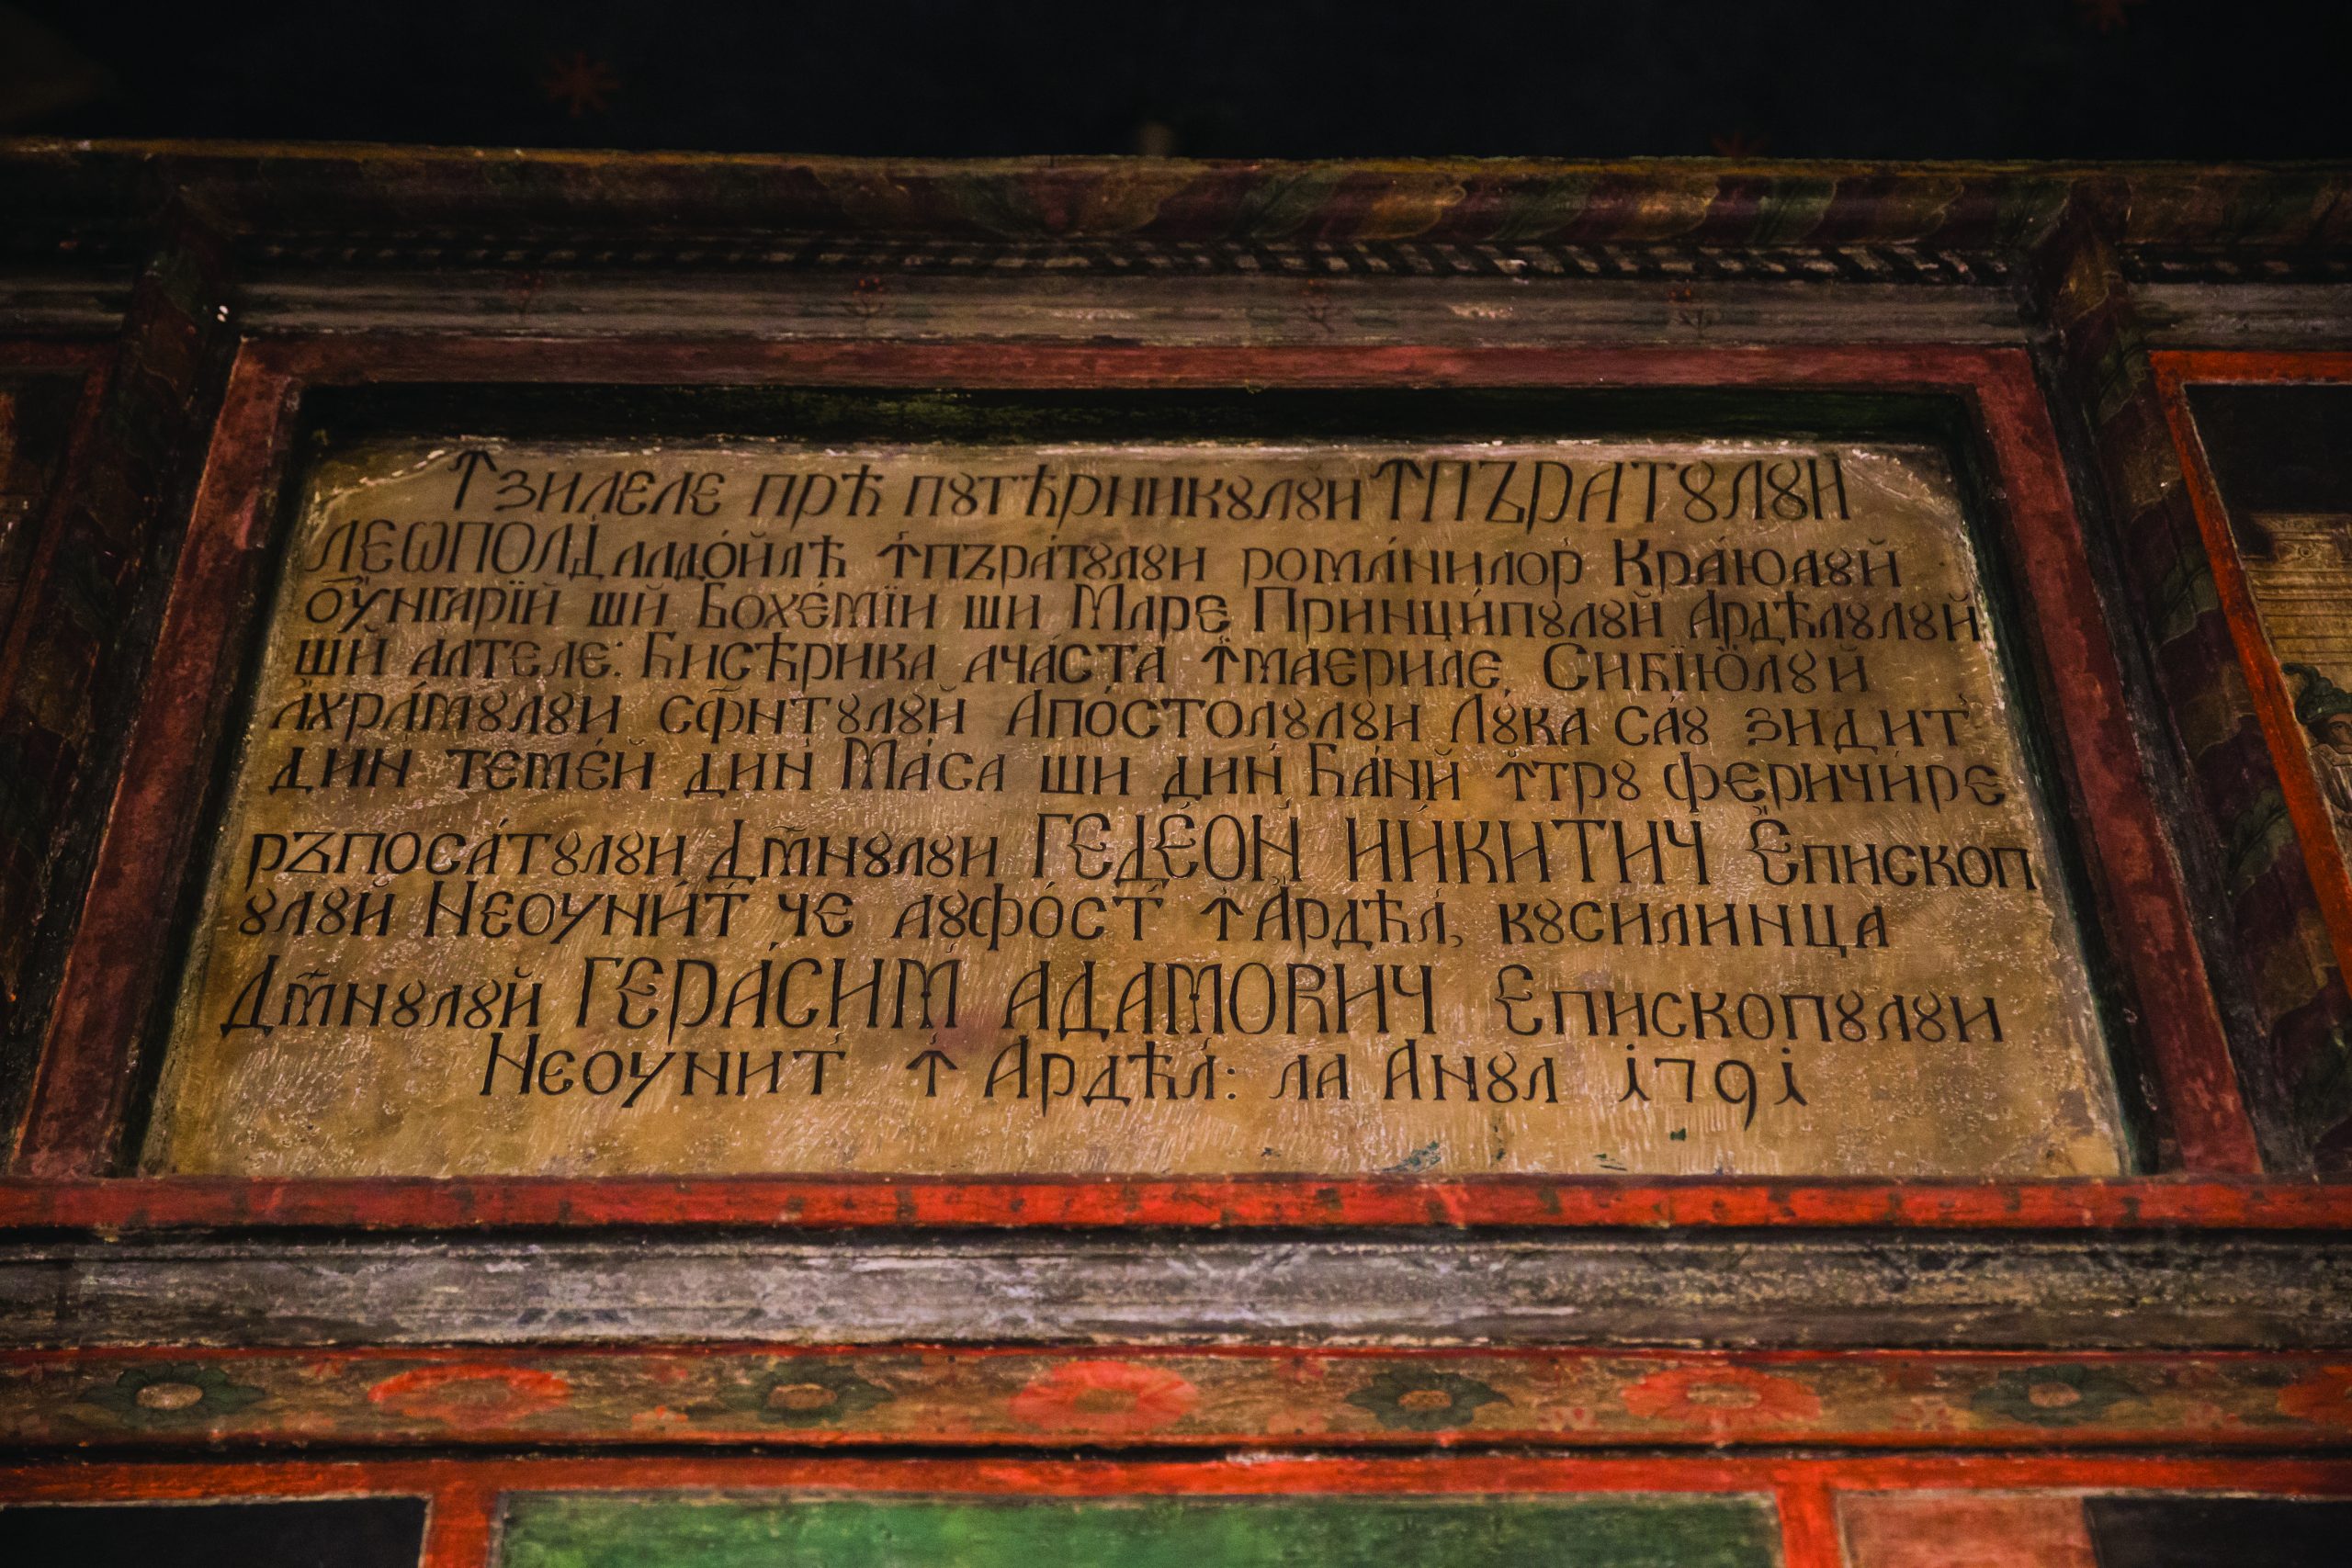 Ꙟзилеле прѣ пꙋтѣрникꙋлꙋи ꙞПЪРАТꙋЛꙋИ
ЛЕѠПОЛД алдо́йлѣ ꙟпъра́тꙋлꙋи рома́нилор Кра́юлꙋй
Оу҆нгарїй шй Бохе́мїи ши Маре Принци́пꙋлꙋй Ардѣлꙋлꙋй
шй алтеле: Бисѣрика ача́ста ꙟмаериле, Сибїю́лꙋй
а҆хра́мꙋлꙋи сф҃нтꙋлꙋй Апо́столꙋлꙋи Лꙋка са́ꙋ зидит
дин теме́й дин Ма́са ши дин Ба́нй ꙟтрꙋ феричи́ре
ръпоса́тꙋлꙋи Дм҃нꙋлꙋи ГЕДЕ́ОН НИКИТИЧ Е҆пископ
ꙋлꙋй Неоуни́т че аꙋфо́ст ꙟАрдѣл, кꙋсилинца
Дм҃нꙋлꙋй ГЕРА́СИМ АДАМОВИЧ Епископꙋлꙋи
Неоунит ꙟ Ардѣл: ла Анꙋл i79i